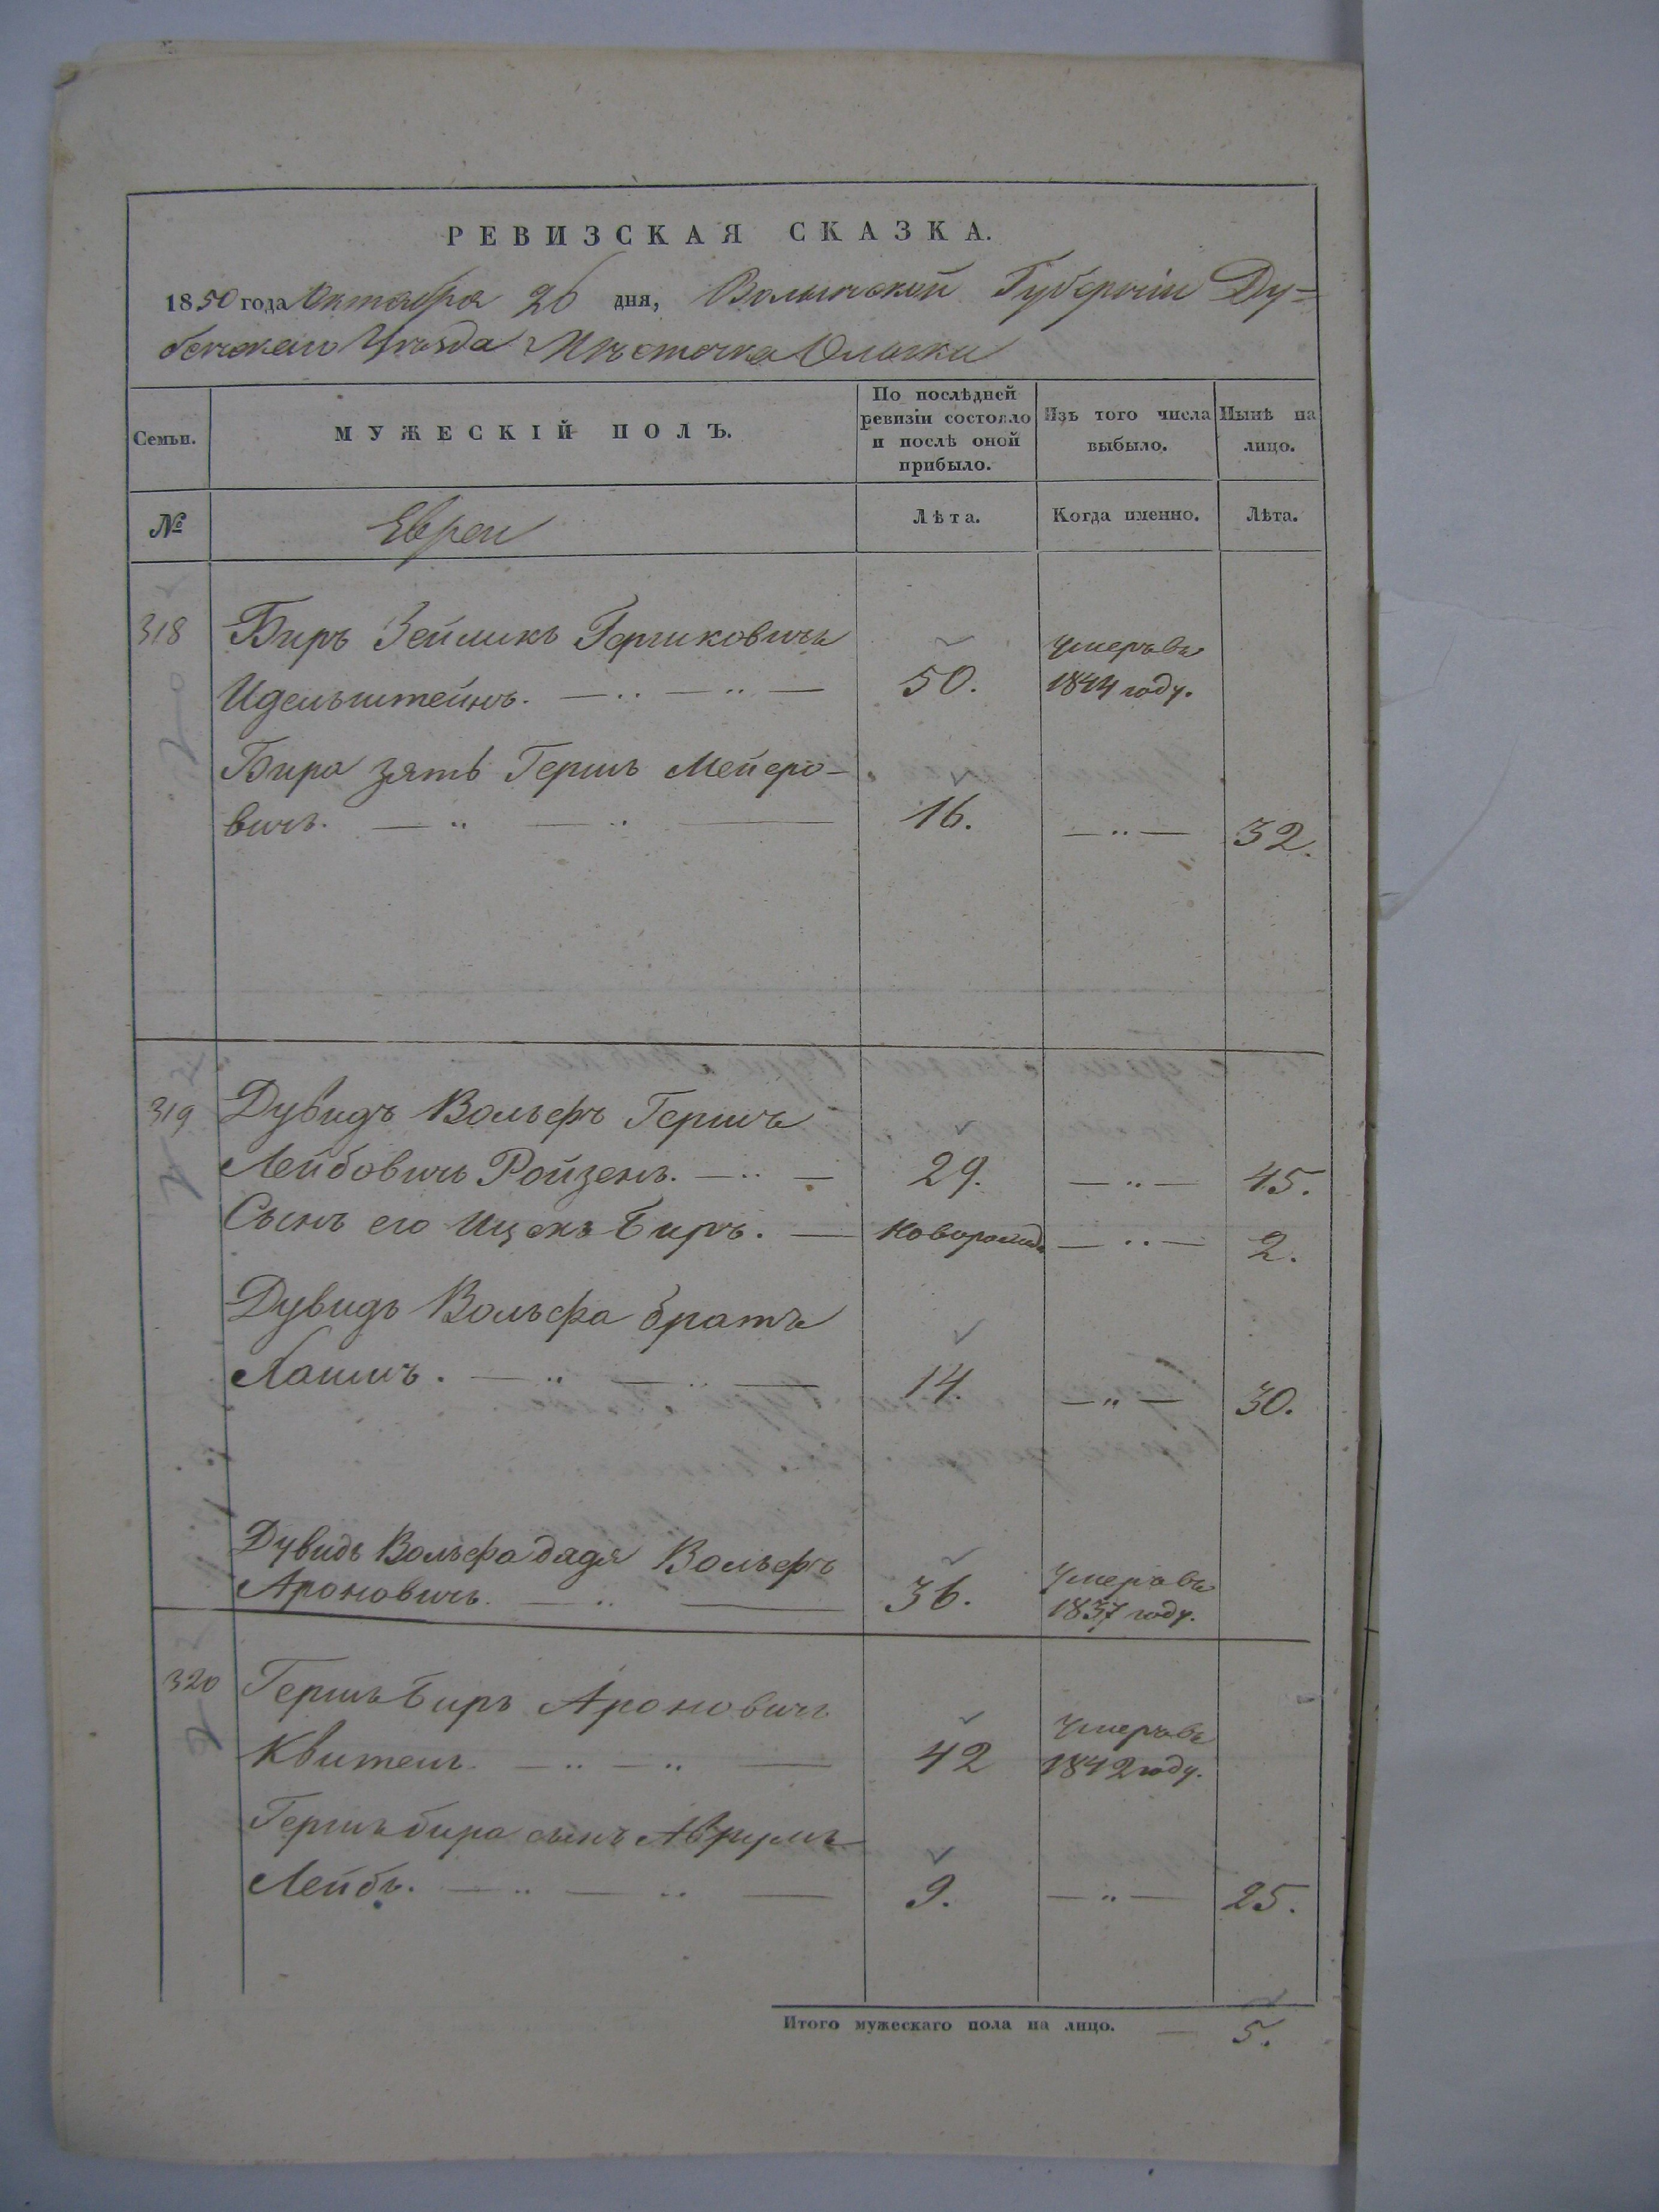 РЕВИЗСКАЯ СКАЗКА.
1850 года Октября 26 дня, Волынской Губерніи Ду-
бенскаго Уѣзда Мѣстечка Олыки
Семьи.
МУЖЕСКІЙ ПОЛЪ.
По послѣдней ревизіи состояло и послѣ оной прибыло.
Изъ того числа выбыло.
Нынѣ на лицо.
№
Евреи
Лѣта.
Когда именно.
Лѣта.
318 Биръ Зейликъ Гершковичъ умеръ въ
Идельштейнъ. 50. 1844 году.
Бира зять Гершъ Мейеро-
вичъ. 16. 32.
319 Дувидъ Вольфъ Гершъ
Лейбовичъ Ройзенъ. 29. 45.
Сынъ его Ицекъ Биръ. новорожд. 2.
Дувидъ Вольфа братъ
Хаимъ. 14. 30.
Дувидъ Вольфа дядя Вольфъ Умеръ въ
Ароновичъ. 36. 1837 году.
320 Гершъ Биръ Ароновичъ Умеръ въ
Квител. 42 1842 году.
Гершъ бира сынъ Аврумъ
Лейбъ. 9. 25.
Итого мужескаго пола на лицо. — 5.